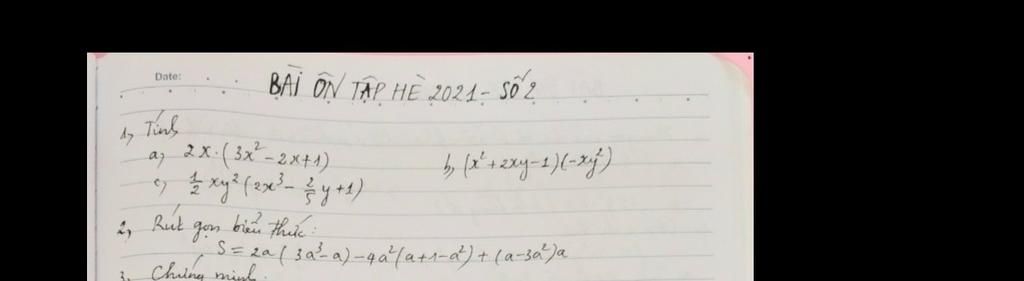 Date:
BÀI ÔN TẬP HÈ 2021 - SỐ 2
1, Tính
a, 2x.(3x² - 2x + 1) b, (x² + 2xy - 1)(-xy²)
c, 1/2 xy² (2x³ - 2/5 y + 1)
2, Rút gọn biểu thức:
S = 2a(3a³ - a) - 4a²(a + 1 - a²) + (a - 3a²)a
3, Chứng minh: